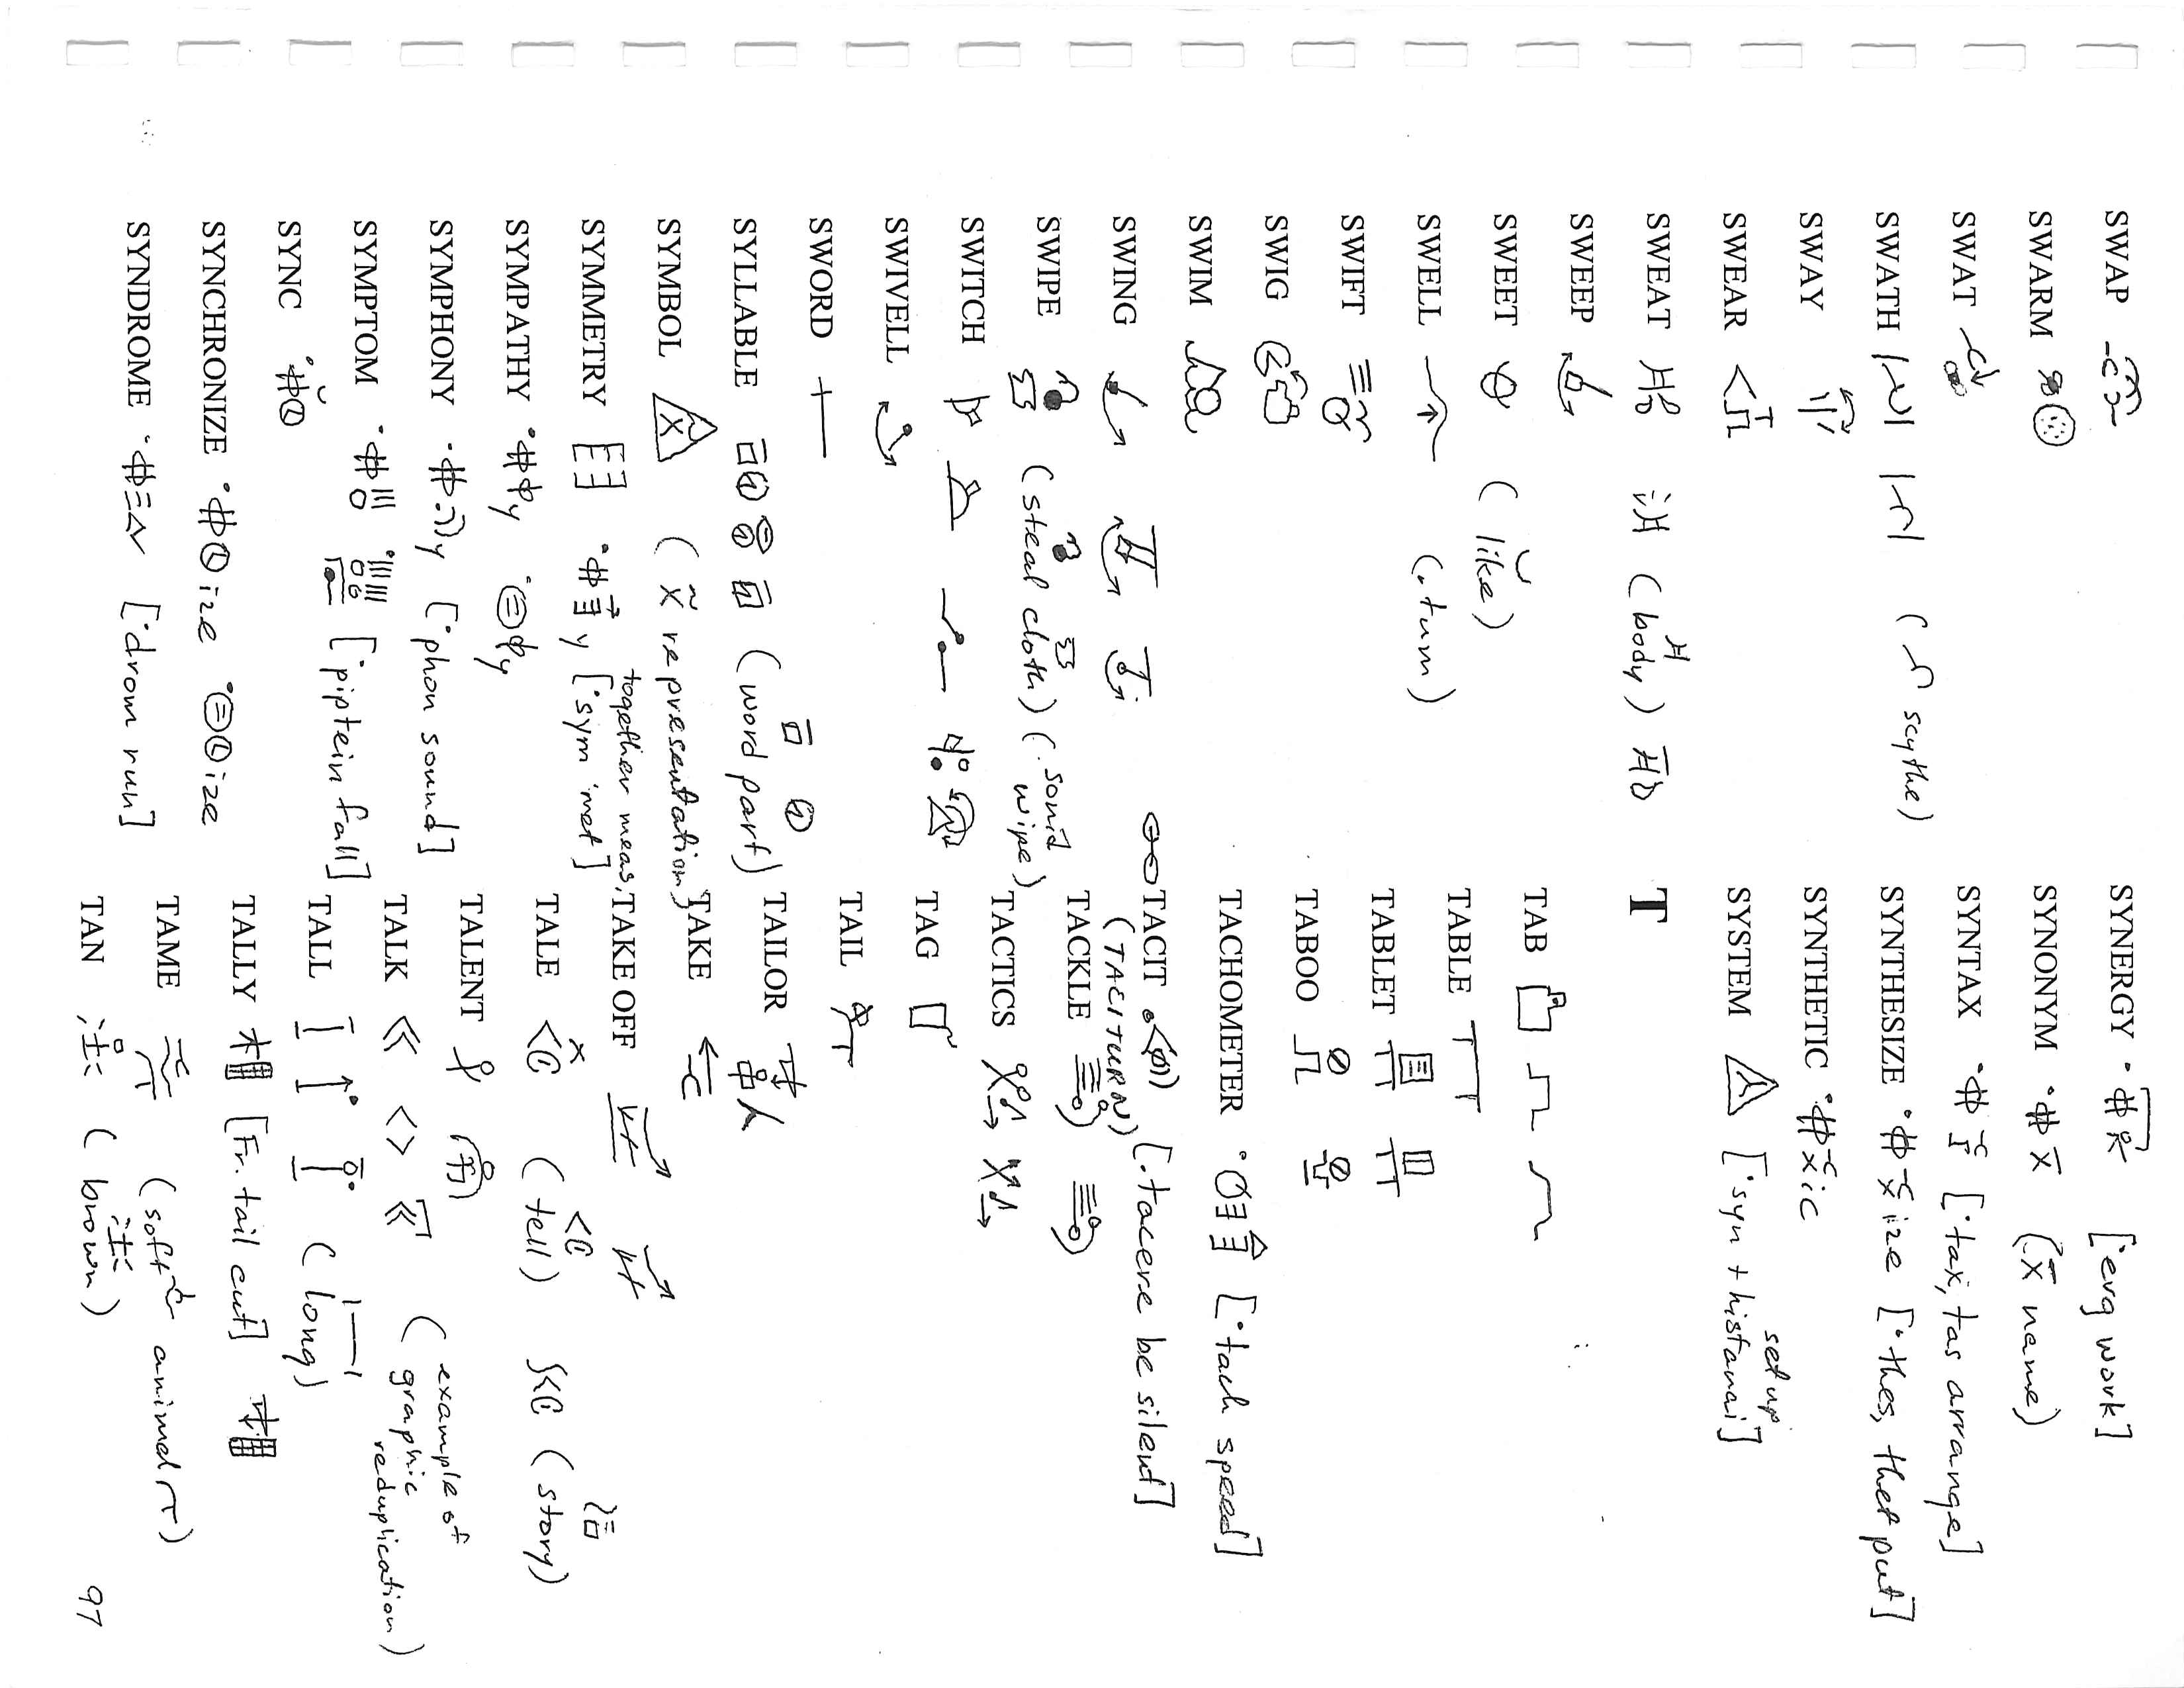 SWAP
SWARM
SWAT
SWATH ( scythe)
SWAY
SWEAR
SWEAT (body)
SWEEP
SWEET (like)
SWELL (.turn)
SWIFT
SWIG
SWIM
SWING
SWIPE (steal cloth) (.sound wipe)
SWITCH
SWIVELL
SWORD
SYLLABLE (word part)
SYMBOL (x̃ representation)
SYMMETRY y together meas. [·sym ·met]
SYMPATHY y y
SYMPHONY y [·phon sound]
SYMPTOM [·piptein fall]
SYNC
SYNCHRONIZE ize ize
SYNDROME [·drom run]
SYNERGY [·erg work]
SYNONYM (x̄ name)
SYNTAX [·tax, tas arrange]
SYNTHESIZE ize [·thes, thet put]
SYNTHETIC ic
SYSTEM [·syn + histanai] set up
T
TAB
TABLE
TABLET
TABOO
TACHOMETER [·tach speed]
TACIT [·tacere be silent]
(TACITURN)
TACKLE
TACTICS
TAG
TAIL
TAILOR
TAKE
TAKE OFF
TALE (tell) (story)
TALENT
TALK (example of graphic reduplication)
TALL (long)
TALLY [Fr. tail cut]
TAME (soft animal)
TAN (brown)
97